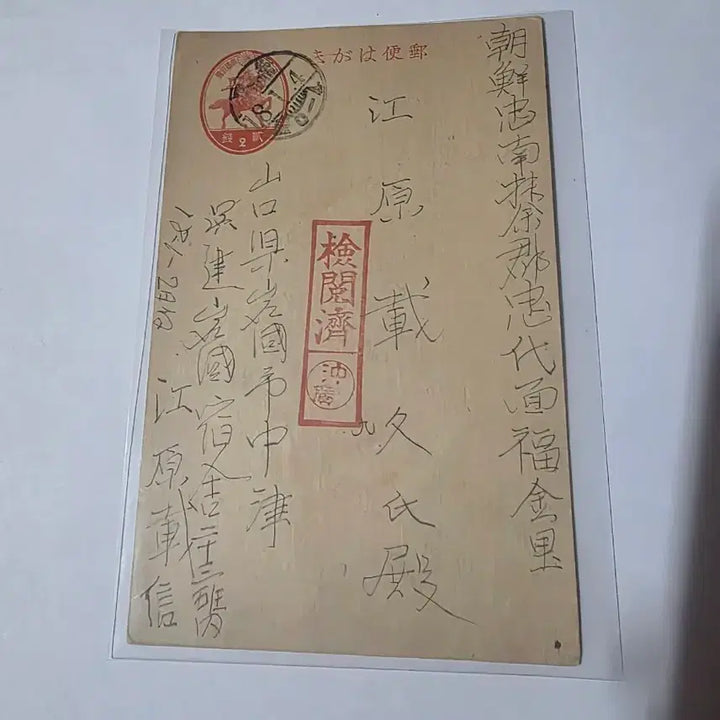 郵便はがき
朝鮮忠南扶余郡忠代面福金里
江原載久氏殿
檢閲濟
山口県岩國市中津
呉建岩國宿舎
江原載信
18.7.4
錢2貳